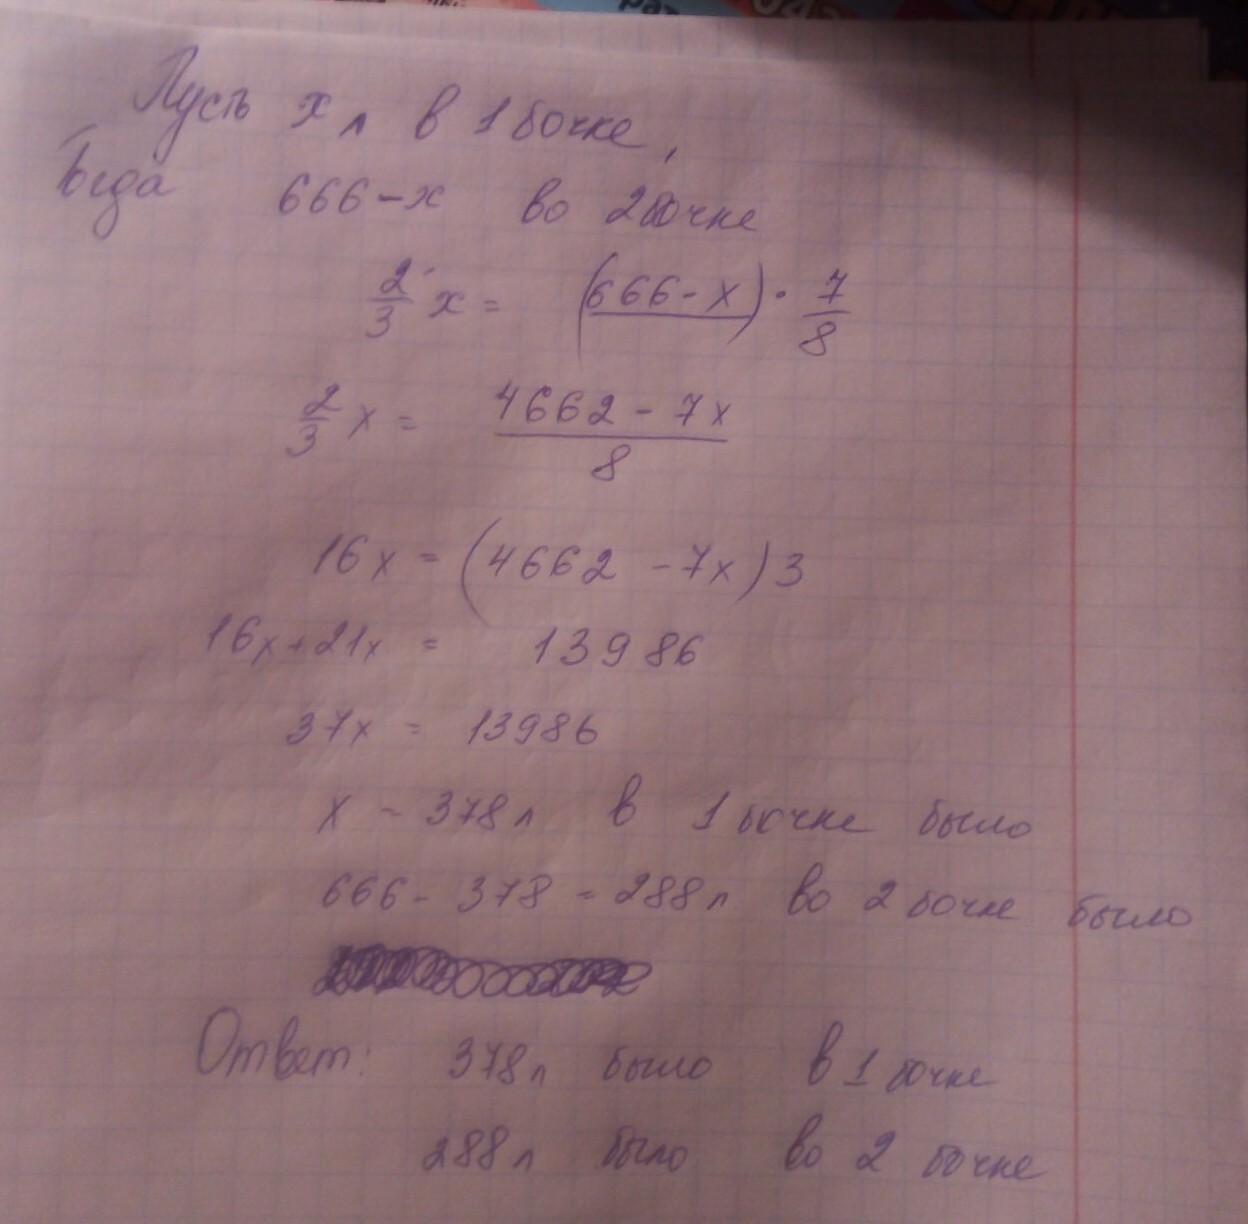 Пусть x л в 1 бочке,
Тогда 666-x во 2 бочке
2/3 x = (666-x) · 7/8
2/3 x = (4662-7x)/8
16x = (4662-7x)3
16x+21x = 13986
37x = 13986
x - 378л в 1 бочке было
666-378=288л во 2 бочке было
Ответ: 378л было в 1 бочке
288л было во 2 бочке